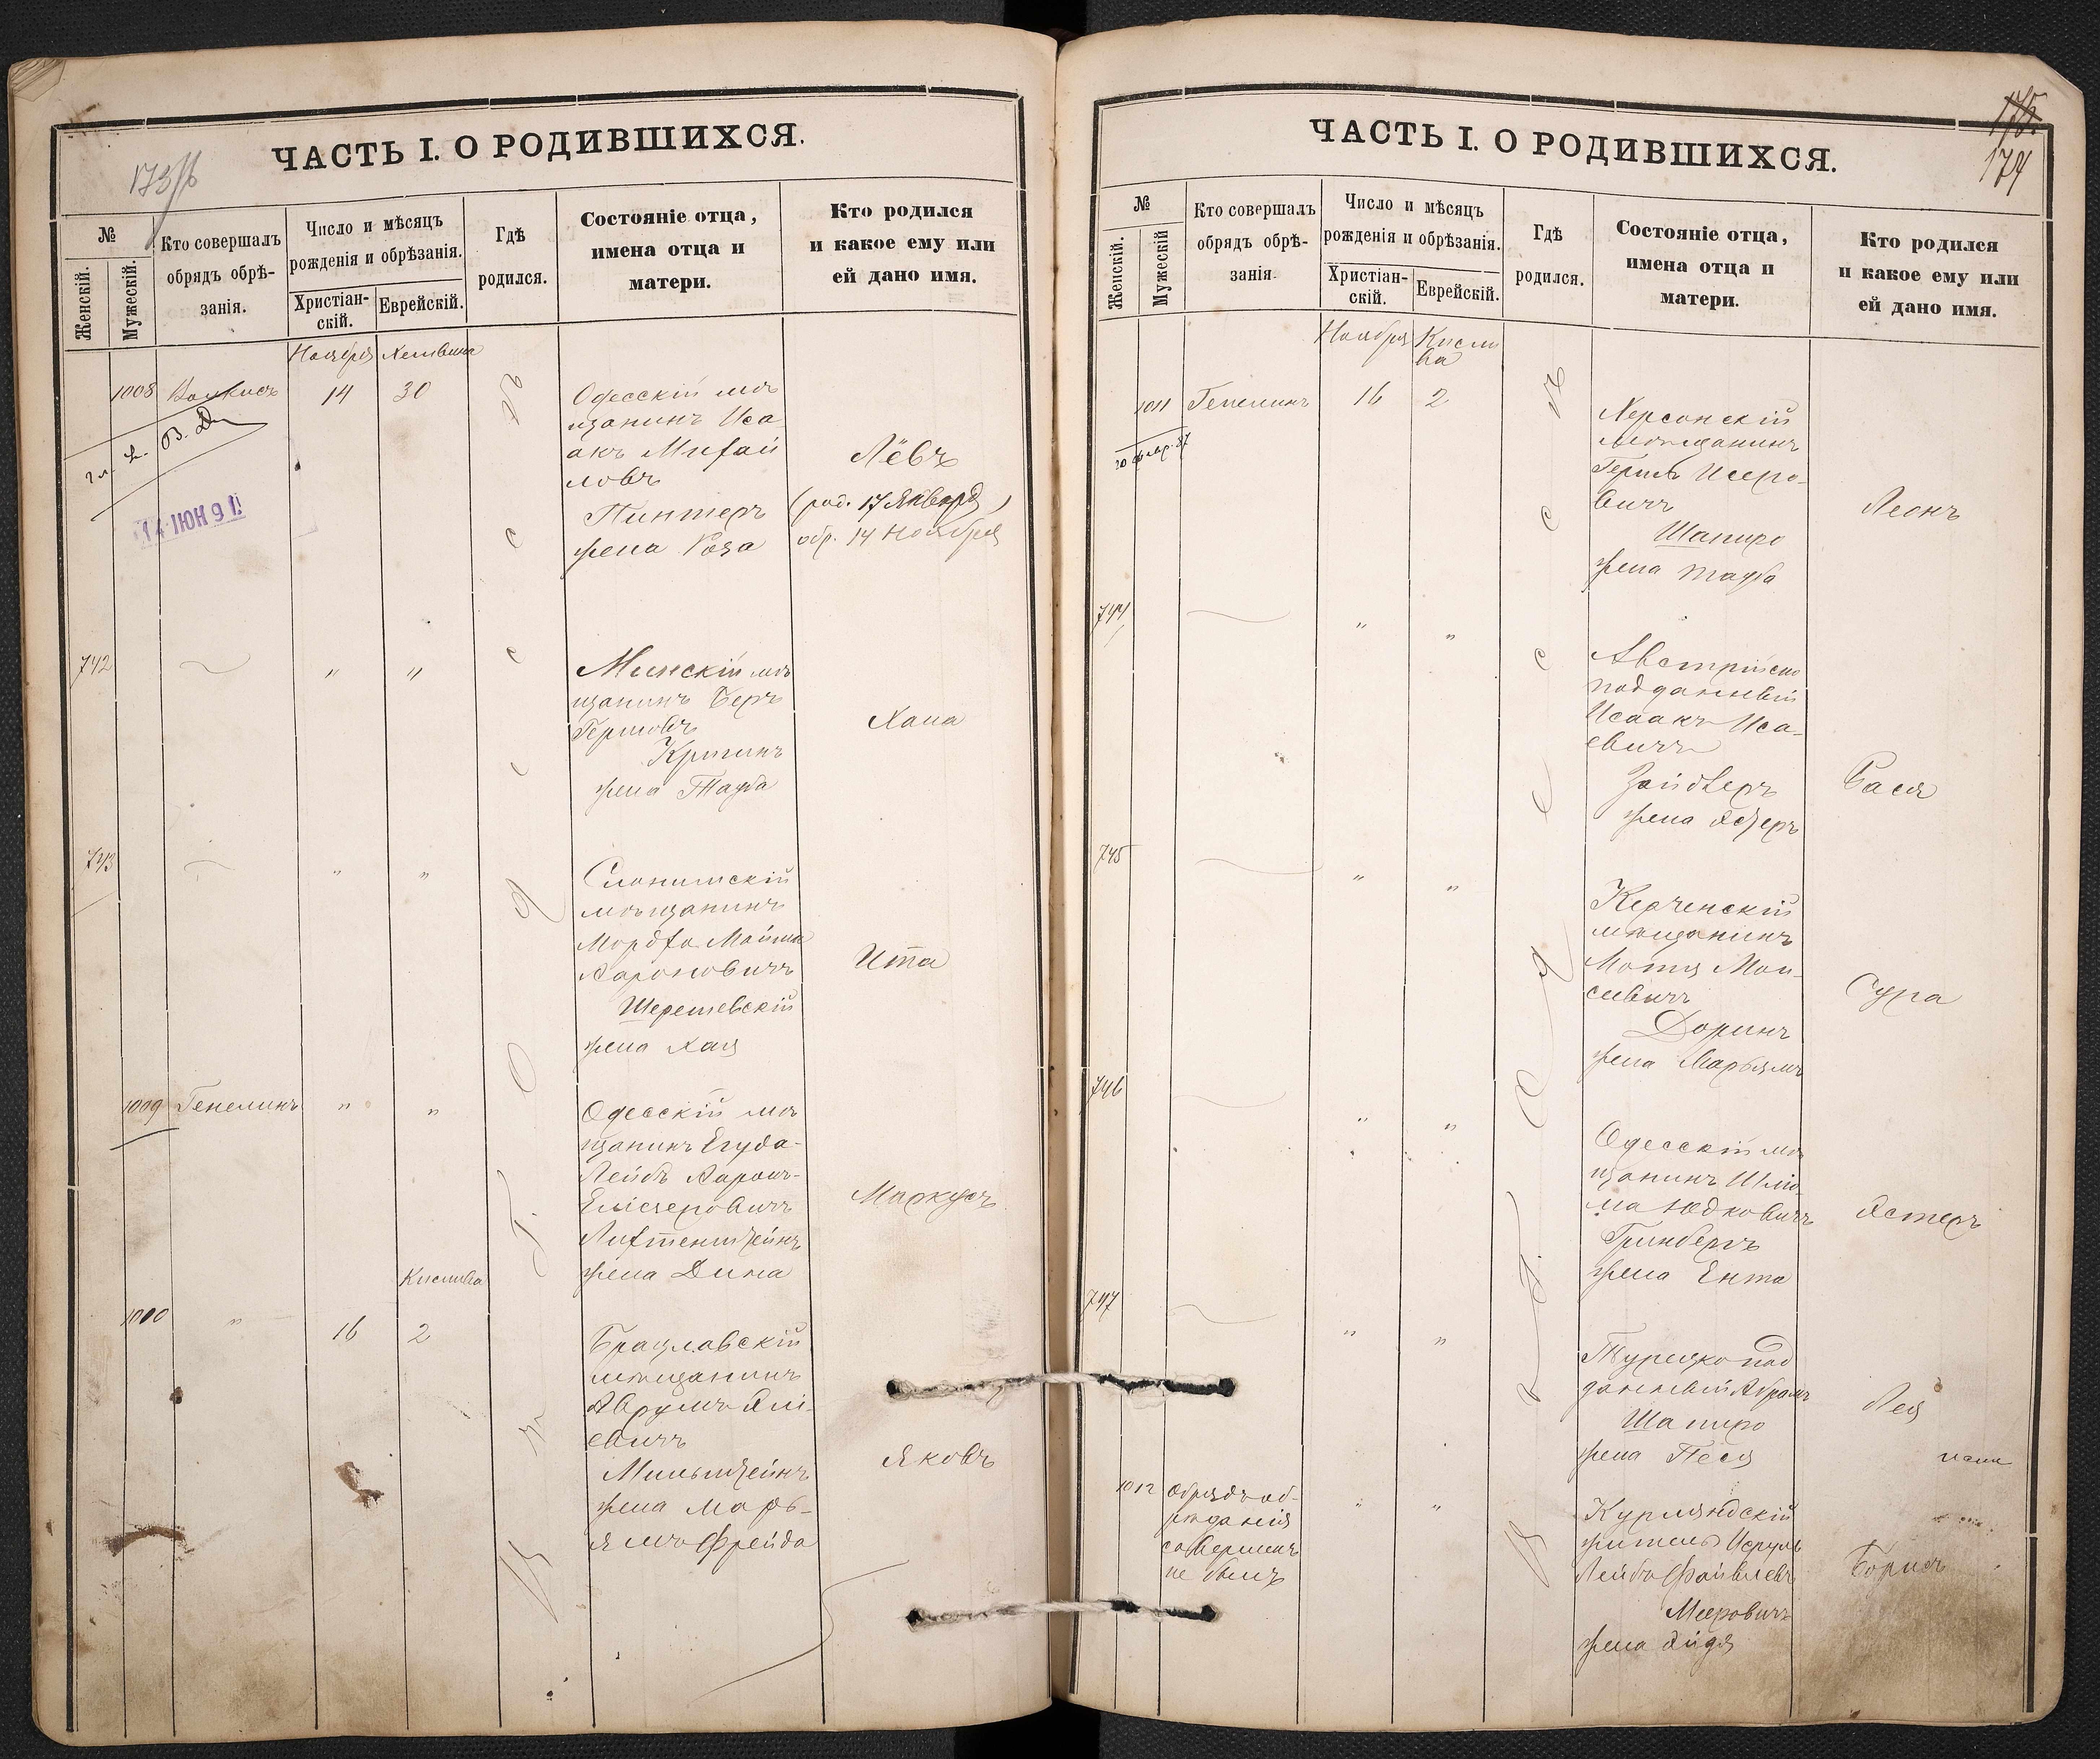 173/б
ЧАСТЬ I. О РОДИВШИХСЯ.
№
Женскій.
Мужескій.
Кто совершалъ
обрядъ обрѣ-
занія.
Число и мѣсяцъ
рожденія и обрѣзанія.
Христіан-
скій.
Еврейскій.
Гдѣ
родился.
Состояніе отца,
имена отца и
матери.
Кто родился
и какое ему или
ей дано имя.
Ноября
1008
14
30
Одесскій мѣ
щанинъ Иса
акъ Михай
ловъ
Пинтеръ
жена Роза
Лёвъ
(род. 17 Января)
обр. 14 Ноября
14 ІЮН 91
742
" "
Минскій мѣ
щанинъ Беръ
Гершовъ
жена Тауба
Хана
743
" "
Слонимскій
мѣщанинъ
Аароновичъ
Шерешевскій
жена Хая
Ита
1009
Гепелинъ
" "
Одесскій мѣ
щанинъ Егуда-
Лейбъ Ааронъ-
Еліезеровичъ
Лихтенштейнъ
жена Дина
Маркусъ
Кислива
1010
"
16
2
Брацлавскій
мѣщанинъ
Аврумъ Элі-
евичъ
Мильштейнъ
жена Марь-
ямъ Фрейда
Яковъ
въ Одессѣ
175.
174
ЧАСТЬ I. О РОДИВШИХСЯ.
№
Женскій.
Мужескій
Кто совершалъ
обрядъ обрѣ-
занія.
Число и мѣсяцъ
рожденія и обрѣзанія.
Христіан-
скій.
Еврейскій.
Гдѣ
родился.
Состояніе отца,
имена отца и
матери.
Кто родился
и какое ему или
ей дано имя.
Ноября
Кисли
ва
1011
Гепелинъ
16
2
Херсонскій
мѣщанинъ
Гершъ Исеро-
вичъ
Шапиро
жена Тауба
Леонъ
744
" "
Австрійско
подданный
Исаакъ Иса-
евичъ
Зайдверъ
жена Эстеръ
Бася
745
" "
Керченскій
мѣщанинъ
Мотя Мои-
сеевичъ
Доринъ
жена Марьямъ
Сура
746
" "
Одесскій мѣ
щанинъ Шлио
ма Юдковичъ
Гринбергъ
жена Ента
Эстеръ
747
" "
Турецко под
данный Абрамъ
Шапиро
жена Песя
Лея
1012
Обрядъ об-
рѣзанія
совершенъ
не былъ
" "
Курляндскій
житель Исруль
Лейба Файвлевъ
Мееровичъ
жена Эйдя
Борисъ